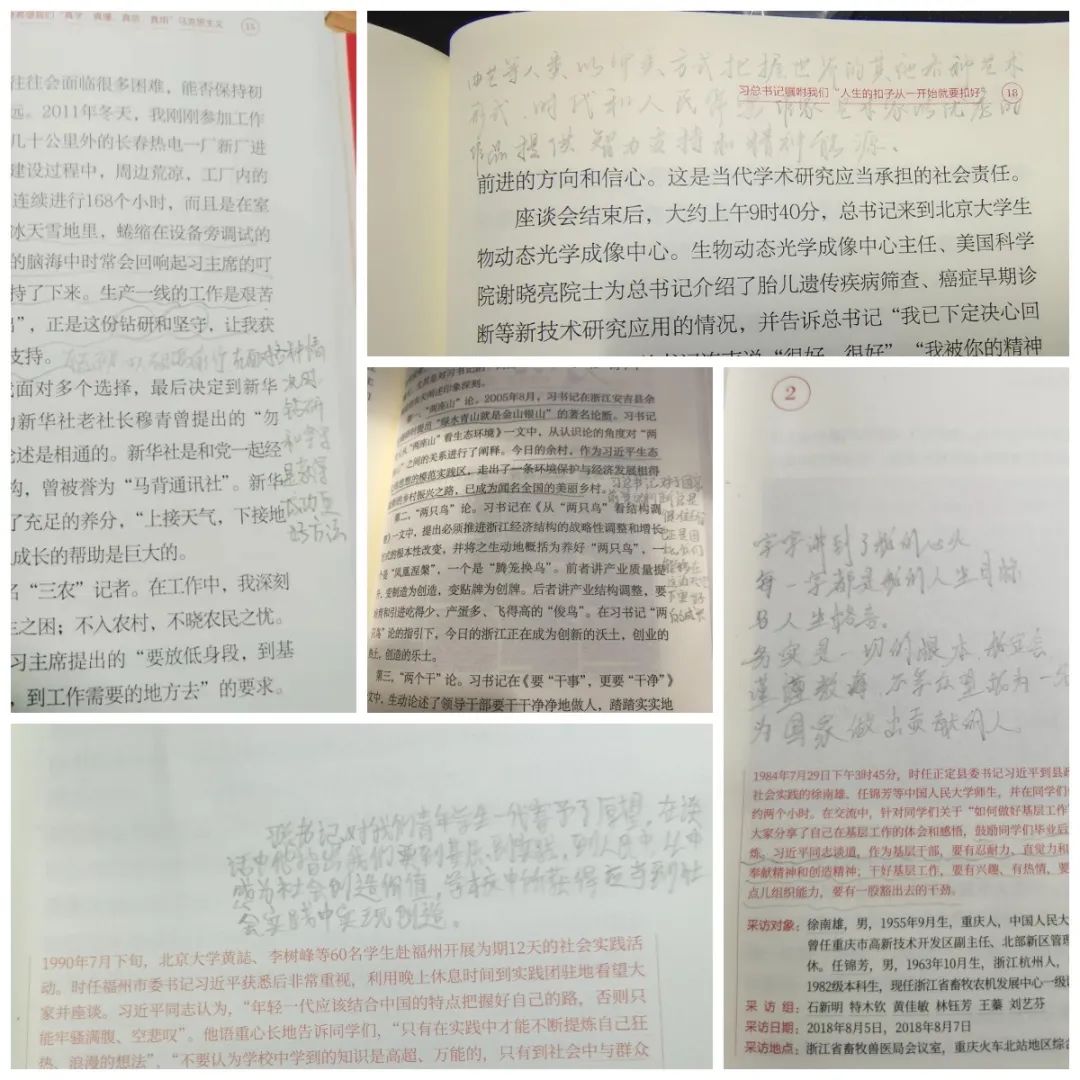 我们“真学、真懂、真信、真用”马克思主义 15
往往会面临很多困难，能否保持初
远。2011年冬天，我刚刚参加工作
几十公里外的长春热电一厂新厂进
建设过程中，周边荒凉，工厂内的
连续进行168个小时，而且是在室
冰天雪地里，蜷缩在设备旁调试的
的脑海中时常会回响起习主席的叮
持了下来。生产一线的工作是艰苦
出”，正是这份钻研和坚守，让我获
支持。
在面对各种情
况时
钻研
和坚守
是获得
成功最
好方法
面对多个选择，最后决定到新华
为新华社老社长穆青曾提出的“勿
论述是相通的。新华社是和党一起经
构，曾被誉为“马背通讯社”。新华
了充足的养分，“上接天气，下接地
成长的帮助是巨大的。
名“三农”记者。在工作中，我深刻
生之困；不入农村，不晓农民之忧。
习主席提出的“要放低身段，到基
，到工作需要的地方去”的要求。
习总书记嘱咐我们“人生的扣子从一开始就要扣好” 18
由艺等人类以审美方式把握世界的其他各种艺术
形式，时代和人民
作品提供智力支持和精神能源。
前进的方向和信心。这是当代学术研究应当承担的社会责任。
座谈会结束后，大约上午9时40分，总书记来到北京大学生
物动态光学成像中心。生物动态光学成像中心主任、美国科学
院谢晓亮院士为总书记介绍了胎儿遗传疾病筛查、癌症早期诊
断等新技术研究应用的情况，并告诉总书记“我已下定决心回
“很好，很好”“我被你的精神
印象深刻。
第一，“两座山”论。2005年8月，习书记在浙江安吉县余
“绿水青山就是金山银山”的著名论断。习书记
《从“两座山”看生态环境》一文中，从认识论的角度对“两
之间的关系进行了阐释。今日的余村，作为习近平生态
思想的模范实践区，走出了一条环境保护与经济发展相得
乡村振兴之路，已成为闻名全国的美丽乡村。
第二，“两只鸟”论。习书记在《从“两只鸟”看结构调
》一文中，提出必须推进浙江经济结构的战略性调整和增长
式的根本性改变，并将之生动地概括为养好“两只鸟”，一
是“凤凰涅槃”，一个是“腾笼换鸟”。前者讲产业质量提
，变制造为创造，变贴牌为创牌。后者讲产业结构调整，要
育和引进吃得少、产蛋多、飞得高的“俊鸟”。在习书记“两
鸟”论的指引下，今日的浙江正在成为创新的沃土，创业的
土，创造的乐土。
第三，“两个干”论。习书记在《要“干事”，更要“干净”》
文中，生动论述了领导干部要干干净净地做人，踏踏实实地
2
字字讲到了我的心火
每一字都是我的人生目标
与人生格言。
务实是一切的根本
谨遵教诲
为国家做出贡献的人
1984年7月29日下午3时45分，时任正定县委书记习近平到县政
社会实践的徐南雄、任锦芳等中国人民大学师生，并在同学们
约两个小时。在交流中，针对同学们关于“如何做好基层工作”
大家分享了自己在基层工作的体会和感悟，鼓励同学们毕业后
炼。习近平同志谈道，作为基层干部，要有忍耐力、直觉力和
奉献精神和创造精神；干好基层工作，要有兴趣、有热情，要
点儿组织能力，要有一股豁出去的干劲。
采访对象：徐南雄，男，1955年9月生，重庆人，中国人民大
曾任重庆市高新技术开发区副主任、北部新区管理
休。任锦芳，男，1963年10月生，浙江杭州人，
1982级本科生，现任浙江省畜牧农机发展中心一级
采 访 组：石新明 特木钦 黄佳敏 林钰芳 王蓁 刘艺芬
采访日期：2018年8月5日，2018年8月7日
采访地点：浙江省畜牧兽医局会议室，重庆火车北站地区综
书记对我们青年学生一代寄予了厚望，在谈
话中他指出我们要到基层、到实践，到人民中
成为社会创造价值，学校中所获得应当到社
会实践中实现创造。
1990年7月下旬，北京大学黄誌、李树峰等60名学生赴福州开展为期12天的社会实践活
动。时任福州市委书记习近平获悉后非常重视，利用晚上休息时间到实践团驻地看望大
家并座谈。习近平同志认为，“年轻一代应该结合中国的特点把握好自己的路，否则只
能牢骚满腹、空悲叹”。他语重心长地告诉同学们，“只有在实践中才能不断提炼自己狂
热、浪漫的想法”，“不要认为学校中学到的知识是高超、万能的，只有到社会中与群众